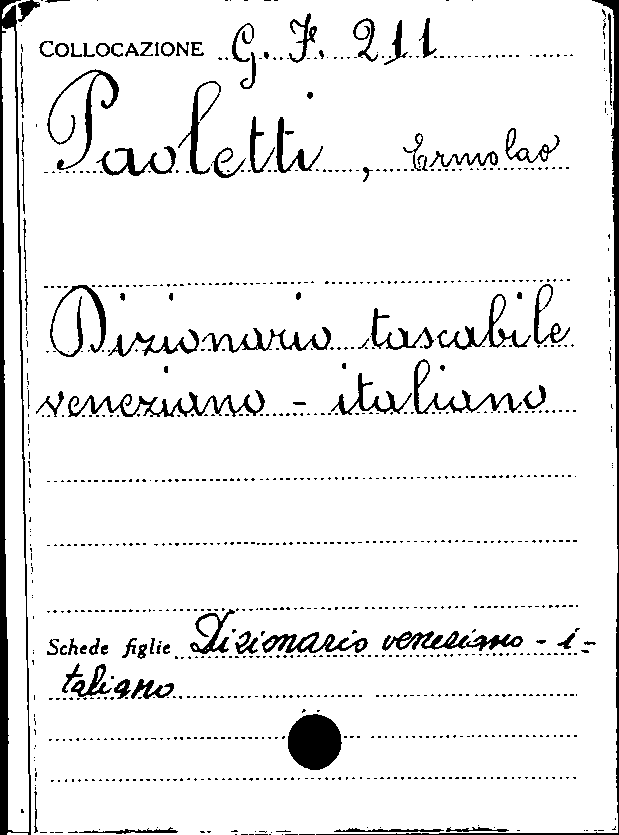 COLLOCAZIONE G. F. 211
Paoletti, Ermolao
Dizionario tascabile
veneziano - italiano
Schede figlie Dizionario veneziano - i-
taliano